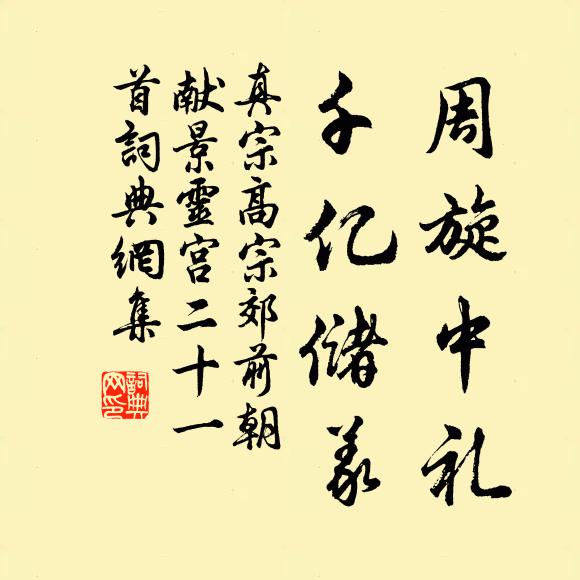 周旋中礼
千亿儲義
真宗高宗郊前朝
献景靈宫二十一
首詞典網集
詞典
网印